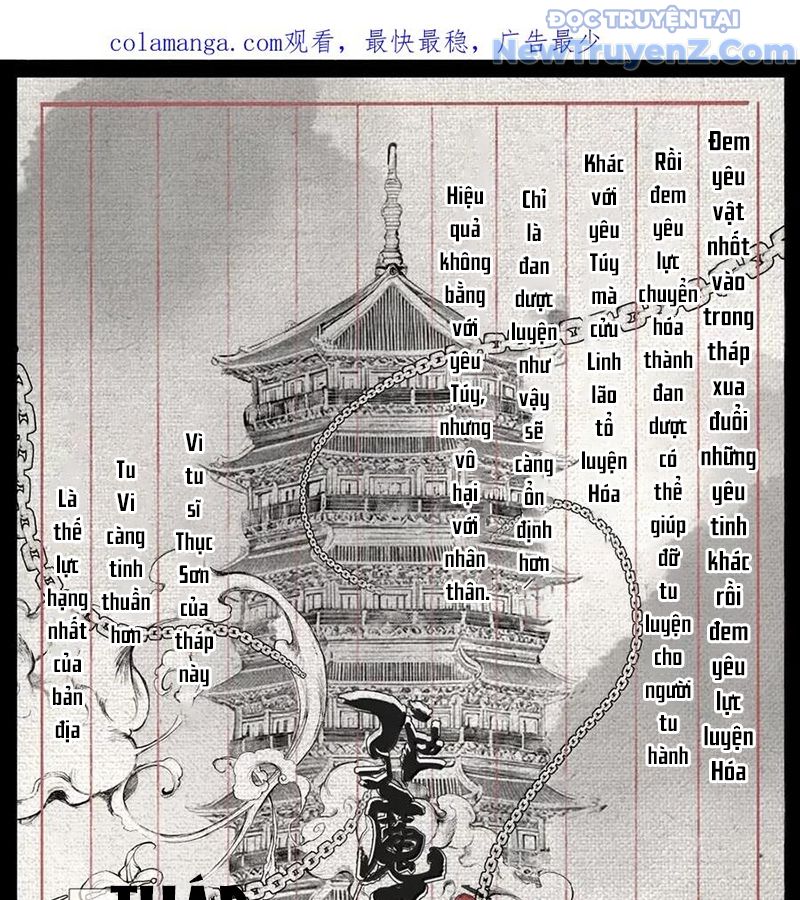 ĐỌC TRUYỆN TẠI
NEWTRUYENZ.COM
colamanga.com观看，最快最稳，广告最少
Đem yêu vật nhốt vào trong tháp xua đuổi những yêu tinh khác rồi đem yêu lực luyện Hóa
Rồi đem yêu lực chuyển hóa thành đan dược có thể giúp đỡ tu luyện cho người tu hành
Khác với yêu Túy mà cửu Linh lão tổ luyện Hóa
Chỉ là đan dược luyện như vậy sẽ càng ổn định hơn
Hiệu quả không bằng với yêu Túy, nhưng vô hại với nhân thân.
Vì tu sĩ Thục Sơn của tháp này
Tu Vi càng tinh thuần hơn
Là thế lực hạng nhất của bản địa
魔
THÁP